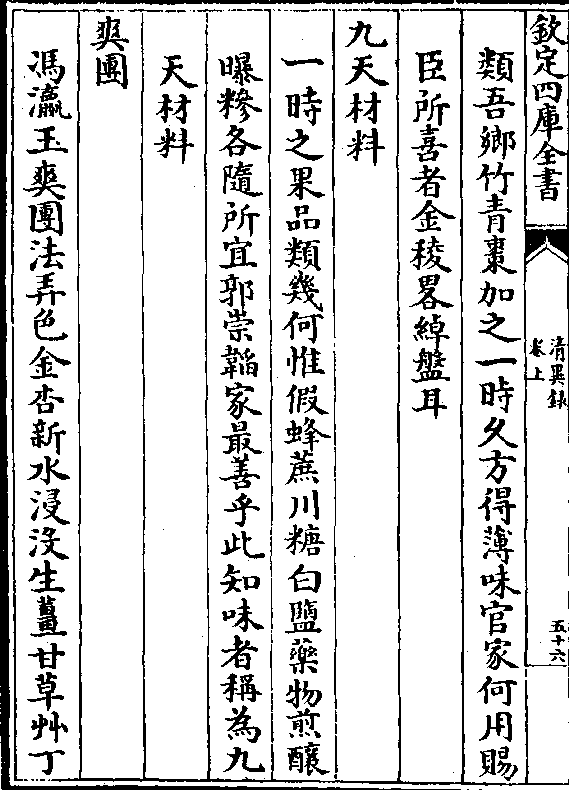 欽定四庫全書
清異錄
卷上
五十六
類吾鄉竹青棗加之一時乆方得薄味官家何用賜
臣所喜者金稜畧綽盤耳
九天材料
一時之果品類幾何惟假蜂蔗川糖白鹽藥物煎釀
曝糝各隨所宜郭崇韜家最善乎此知味者稱為九
天材料
爽團
馮瀛王爽團法弄色金杏新水浸没生薑甘草艸丁